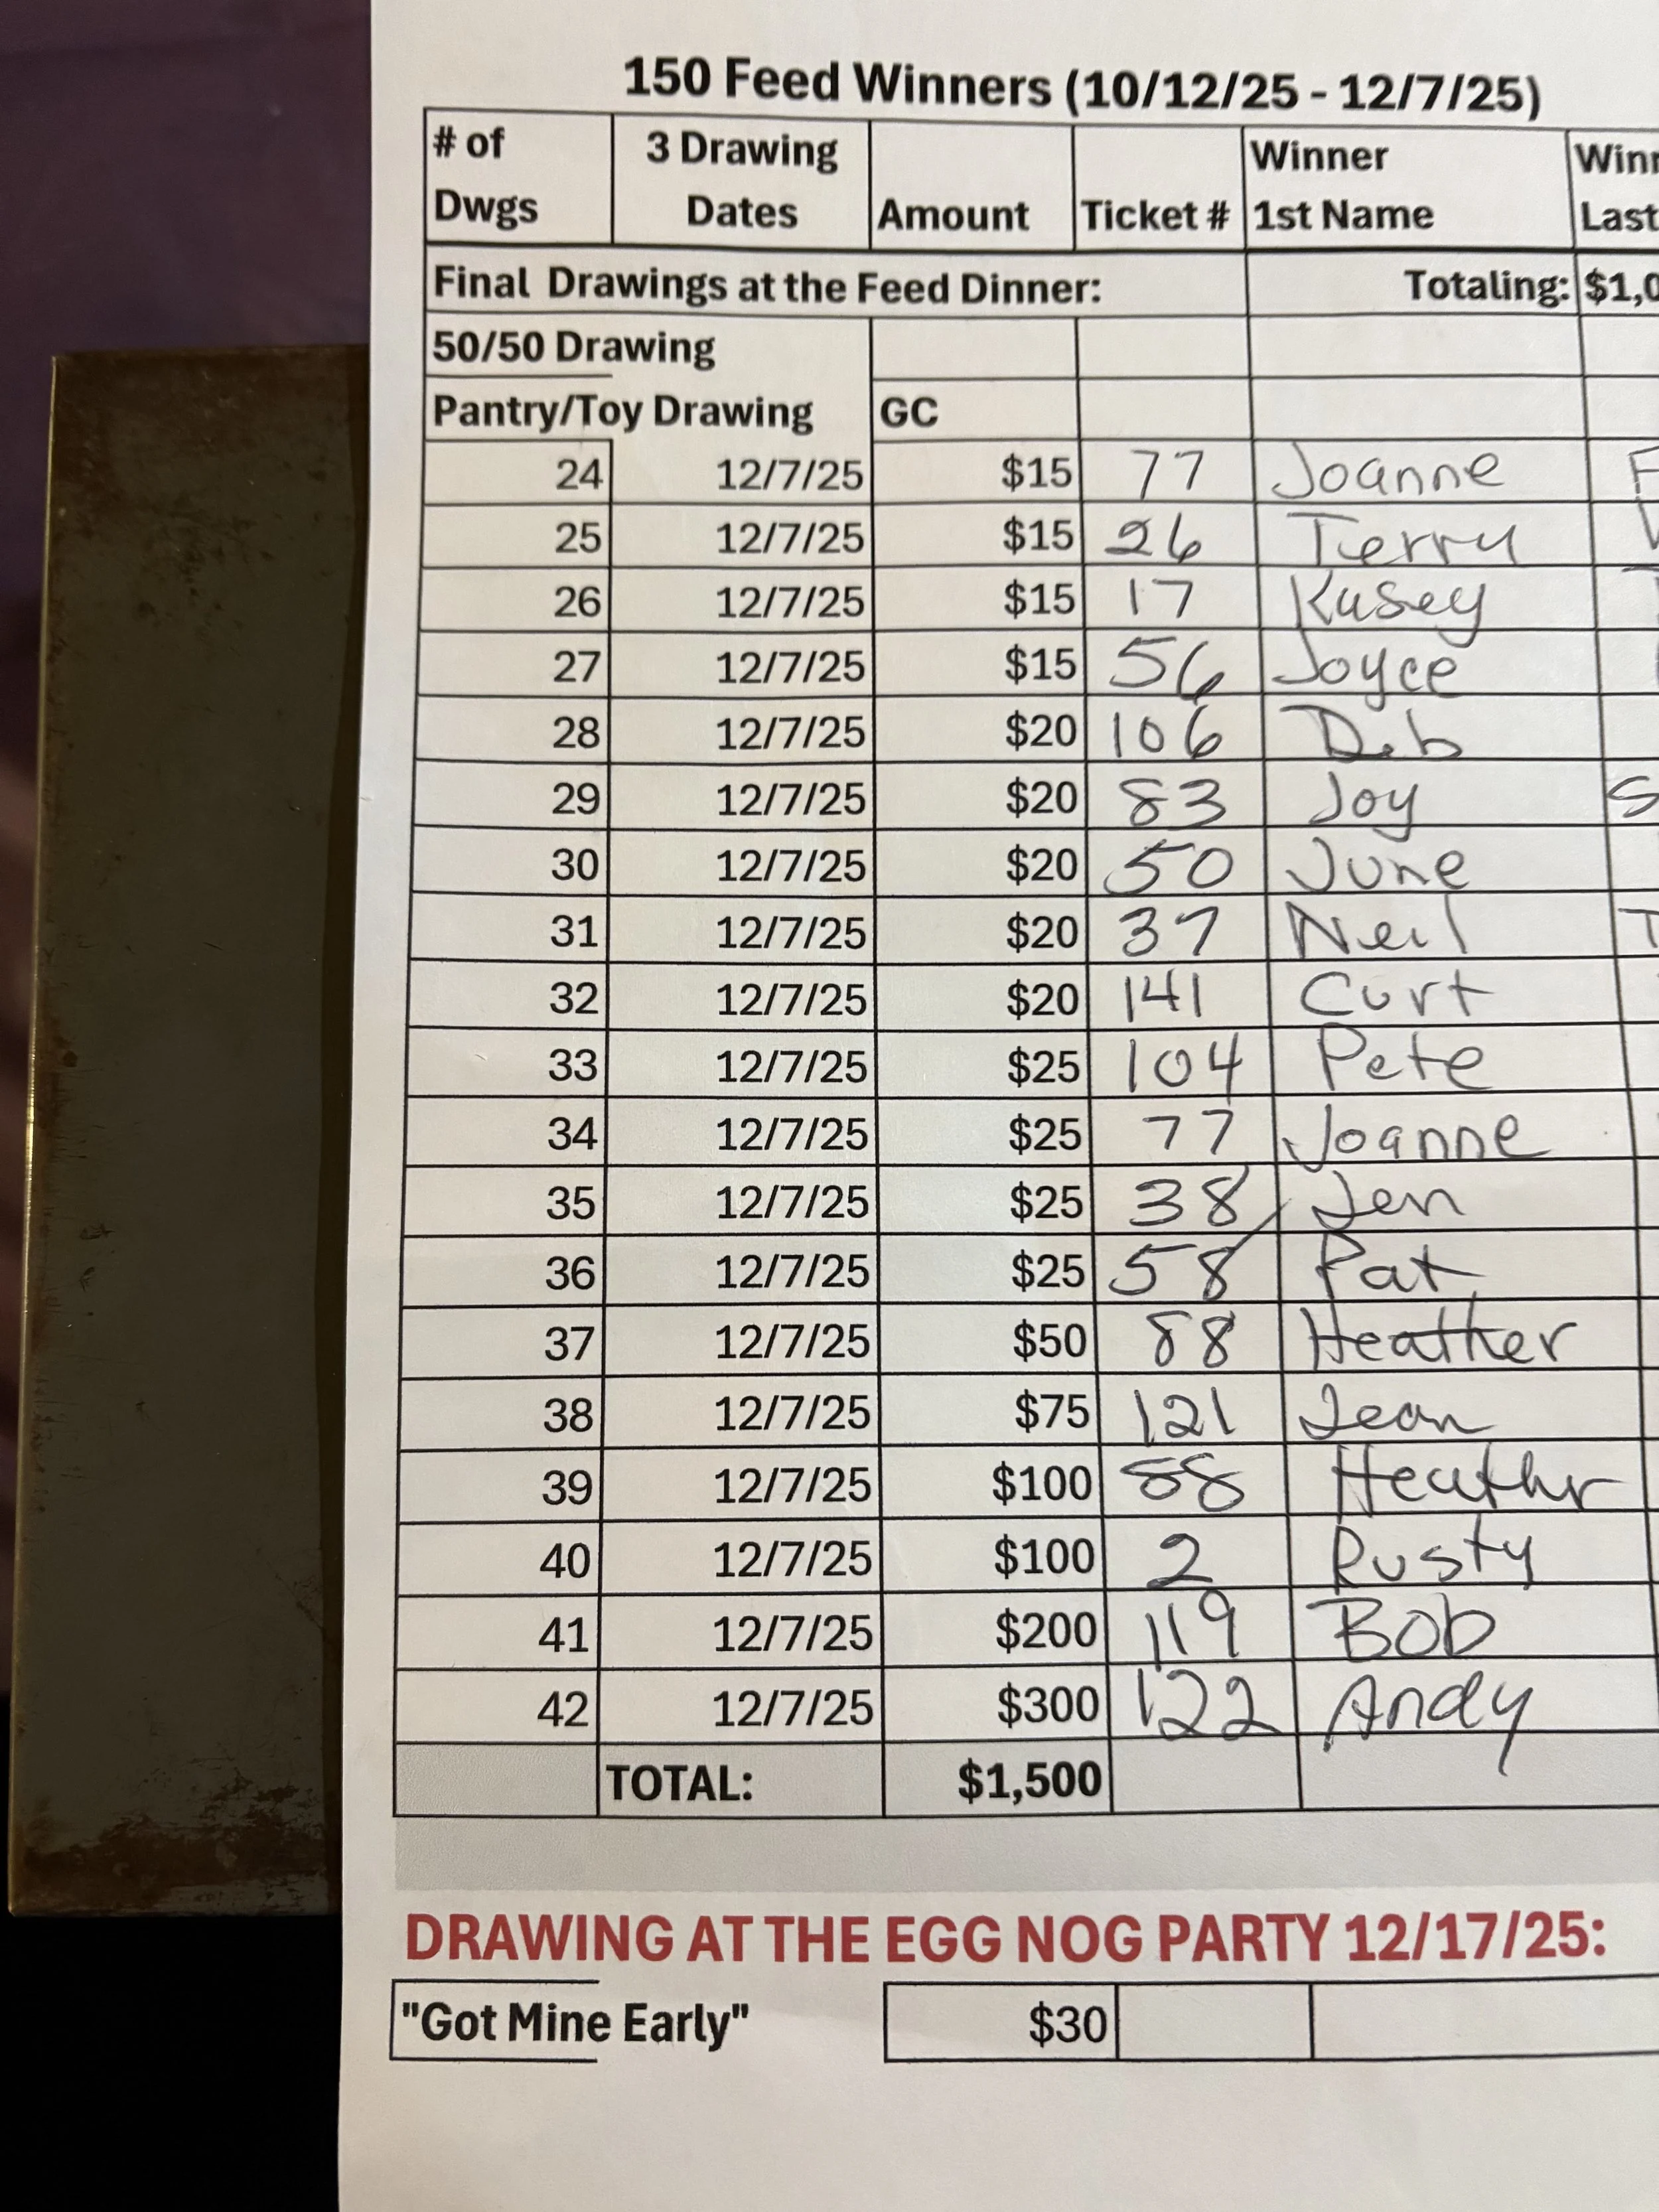 150 Feed Winners (10/12/25 - 12/7/25)
# of Dwgs 3 Drawing Dates Amount Ticket # Winner 1st Name Winn Last
Final Drawings at the Feed Dinner: Totaling: $1,0
50/50 Drawing
Pantry/Toy Drawing GC
24 12/7/25 $15 77 Joanne F
25 12/7/25 $15 26 Terry
26 12/7/25 $15 17 Kasey
27 12/7/25 $15 56 Joyce
28 12/7/25 $20 106 Deb
29 12/7/25 $20 83 Joy S
30 12/7/25 $20 50 June
31 12/7/25 $20 37 Neil T
32 12/7/25 $20 141 Curt
33 12/7/25 $25 104 Pete
34 12/7/25 $25 77 Joanne
35 12/7/25 $25 38 Jen
36 12/7/25 $25 58 Pat
37 12/7/25 $50 88 Heather
38 12/7/25 $75 121 Jean
39 12/7/25 $100 88 Heathr
40 12/7/25 $100 2 Rusty
41 12/7/25 $200 119 Bob
42 12/7/25 $300 122 Andy
TOTAL: $1,500
DRAWING AT THE EGG NOG PARTY 12/17/25:
"Got Mine Early" $30